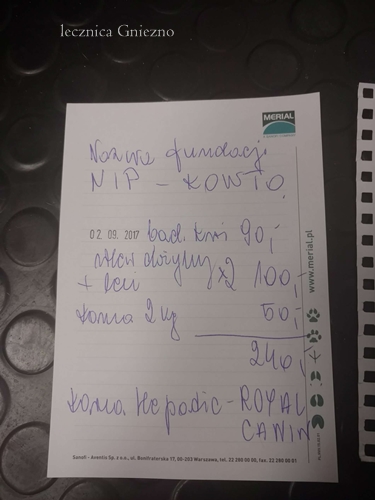 lecznica Gniezno
MERIAL
A SANOFI COMPANY
Nazwa fundacji
NIP - KONTO
02 09. 2017 bad. krwi 90,-
wlew dożylny x2 100,-
+ leki
karma 2 kg 50,-
240,-
karma Hepatic - ROYAL
CANIN
www.merial.pl
Sanofi - Aventis Sp. z o.o., ul. Bonifraterska 17, 00-203 Warszawa, tel. 22 280 00 00, fax. 22 280 06 01